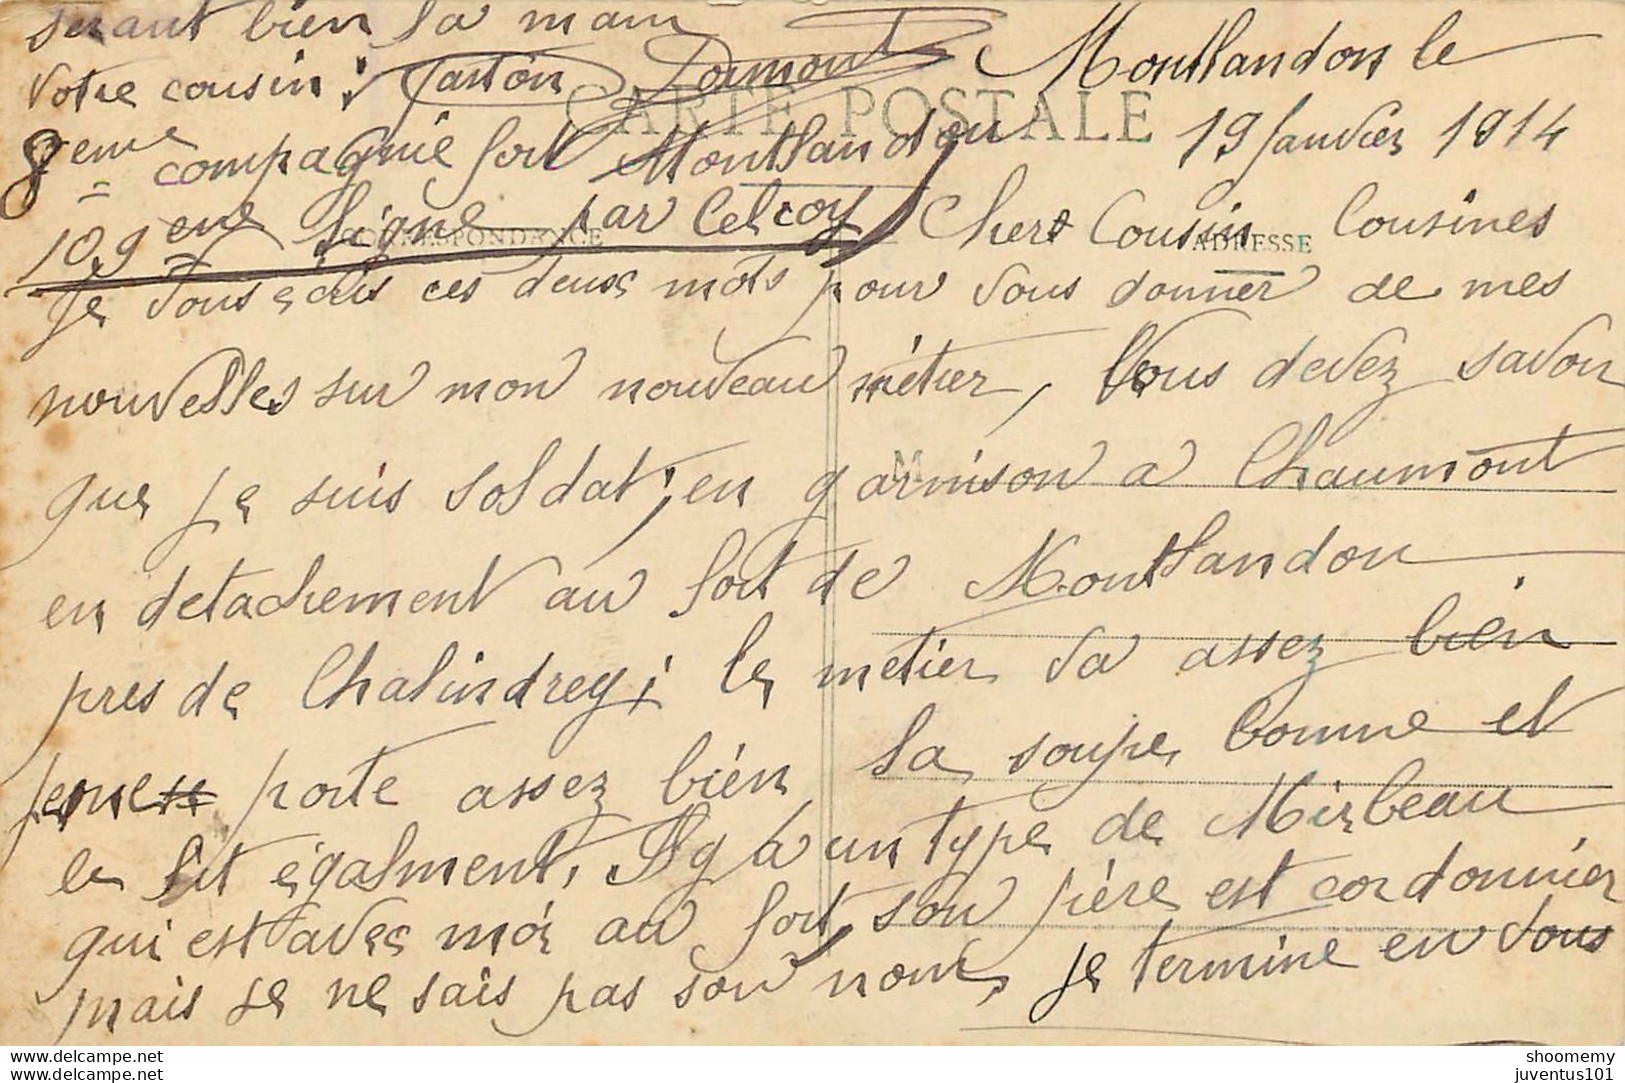 Montlandon le
19 Janvier 1914
Chers Cousin Cousines
Je vous écris ces deux mots pour vous donner de mes
nouvelles sur mon nouveau métier, Vous devez savoir
que je suis soldat, en garnison a Chaumont
en detachement au fort de Montlandon
pres de Chalindrey; le metier va assez bien
je me porte assez bien la soupe bonne et
le lit égalment, Il y a un type de Mirbeau
qui est avec moi au fort, son père est cordonnier
mais je ne sais pas son nom, je termine en vous
serant bien la main
votre cousin: Gaston
8eme compagnie fort Montlandon
109eme ligne par Celcoy
CARTE POSTALE
CORRESPONDANCE
ADRESSE
M
www.delcampe.com
www.delcampe.com
shoomemy
juventus101